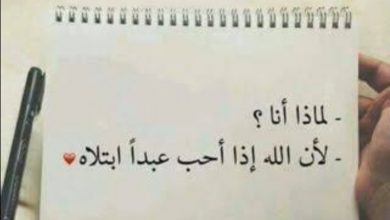 - لماذا أنا ؟
- لأن الله إذا أحب عبداً ابتلاه ❤